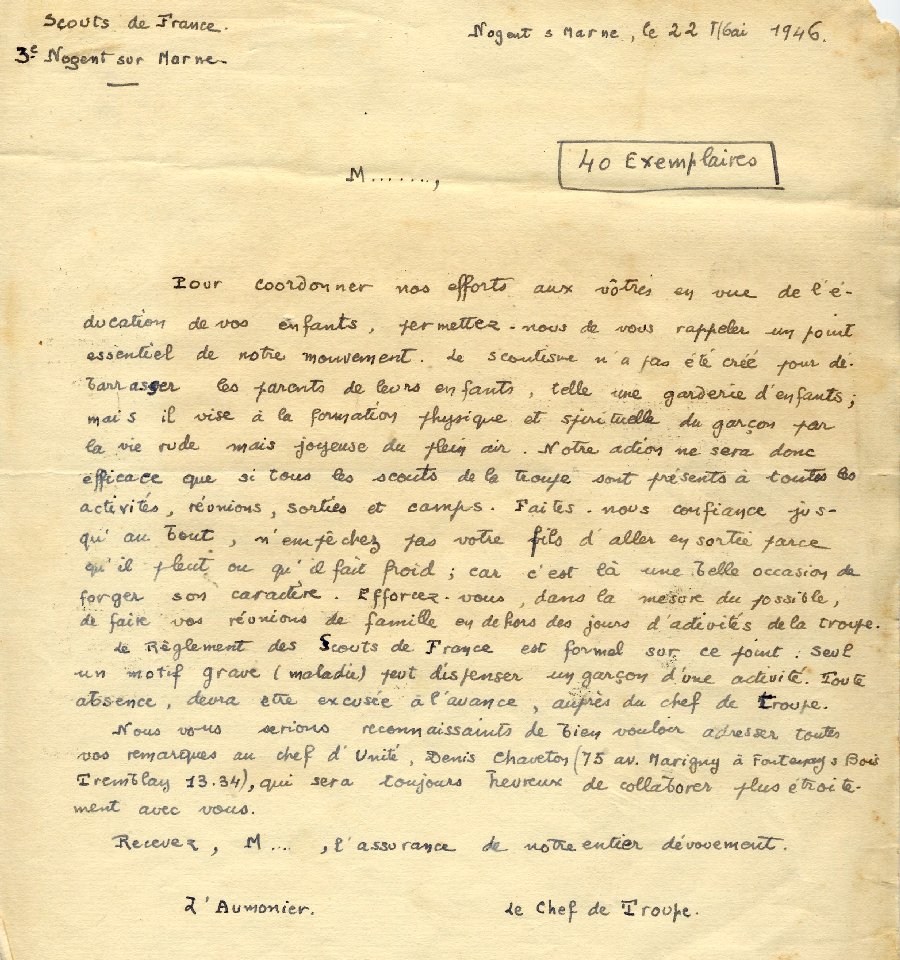 Scouts de France.
Nogent s Marne, le 22 Mai 1946.
3e Nogent sur Marne.
40 Exemplaires
M.......,
Pour coordonner nos efforts aux vôtres en vue de l'é-
ducation de vos enfants, permettez-nous de vous rappeler un point
essentiel de notre mouvement. Le scoutisme n'a pas été créé pour dé-
barrasser les parents de leurs enfants, telle une garderie d'enfants;
mais il vise à la formation physique et spirituelle du garçon par
la vie rude mais joyeuse du plein air. Notre action ne sera donc
efficace que si tous les scouts de la troupe sont présents à toutes les
activités, réunions, sorties et camps. Faites-nous confiance jus-
qu'au bout, n'empêchez pas votre fils d'aller en sortie parce
qu'il pleut ou qu'il fait froid; car c'est là une belle occasion de
forger son caractère. Efforcez-vous, dans la mesure du possible,
de faire vos réunions de famille en dehors des jours d'activités de la troupe.
Le Règlement des Scouts de France est formel sur ce point: seul
un motif grave (maladie) peut dispenser un garçon d'une activité. Toute
absence, devra être excusée à l'avance, auprès du chef de troupe.
Nous vous serions reconnaissants de bien vouloir adresser toutes
vos remarques au chef d'Unité, Denis Chaveton (75 av. Marigny à Fontenay s Bois
Tremblay 13.34), qui sera toujours heureux de collaborer plus étroite-
ment avec vous.
Recevez, M...., l'assurance de notre entier dévouement.
L'Aumonier.
Le Chef de Troupe.